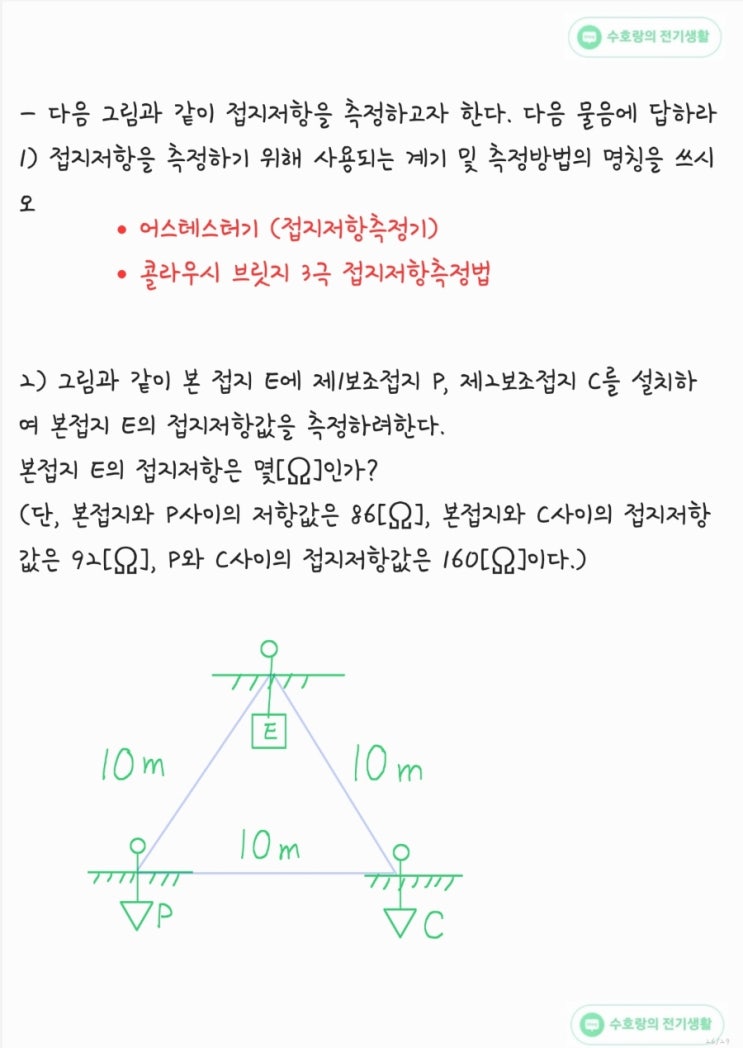 수호랑의 전기생활
- 다음 그림과 같이 접지저항을 측정하고자 한다. 다음 물음에 답하라
1) 접지저항을 측정하기 위해 사용되는 계기 및 측정방법의 명칭을 쓰시
오
• 어스테스터기 (접지저항측정기)
• 콜라우시 브릿지 3극 접지저항측정법
2) 그림과 같이 본 접지 E에 제1보조접지 P, 제2보조접지 C를 설치하
여 본접지 E의 접지저항값을 측정하려한다.
본접지 E의 접지저항은 몇[Ω]인가?
(단, 본접지와 P사이의 저항값은 86[Ω], 본접지와 C사이의 접지저항
값은 92[Ω], P와 C사이의 접지저항값은 160[Ω]이다.)
E
10m 10m
10m
P C
수호랑의 전기생활